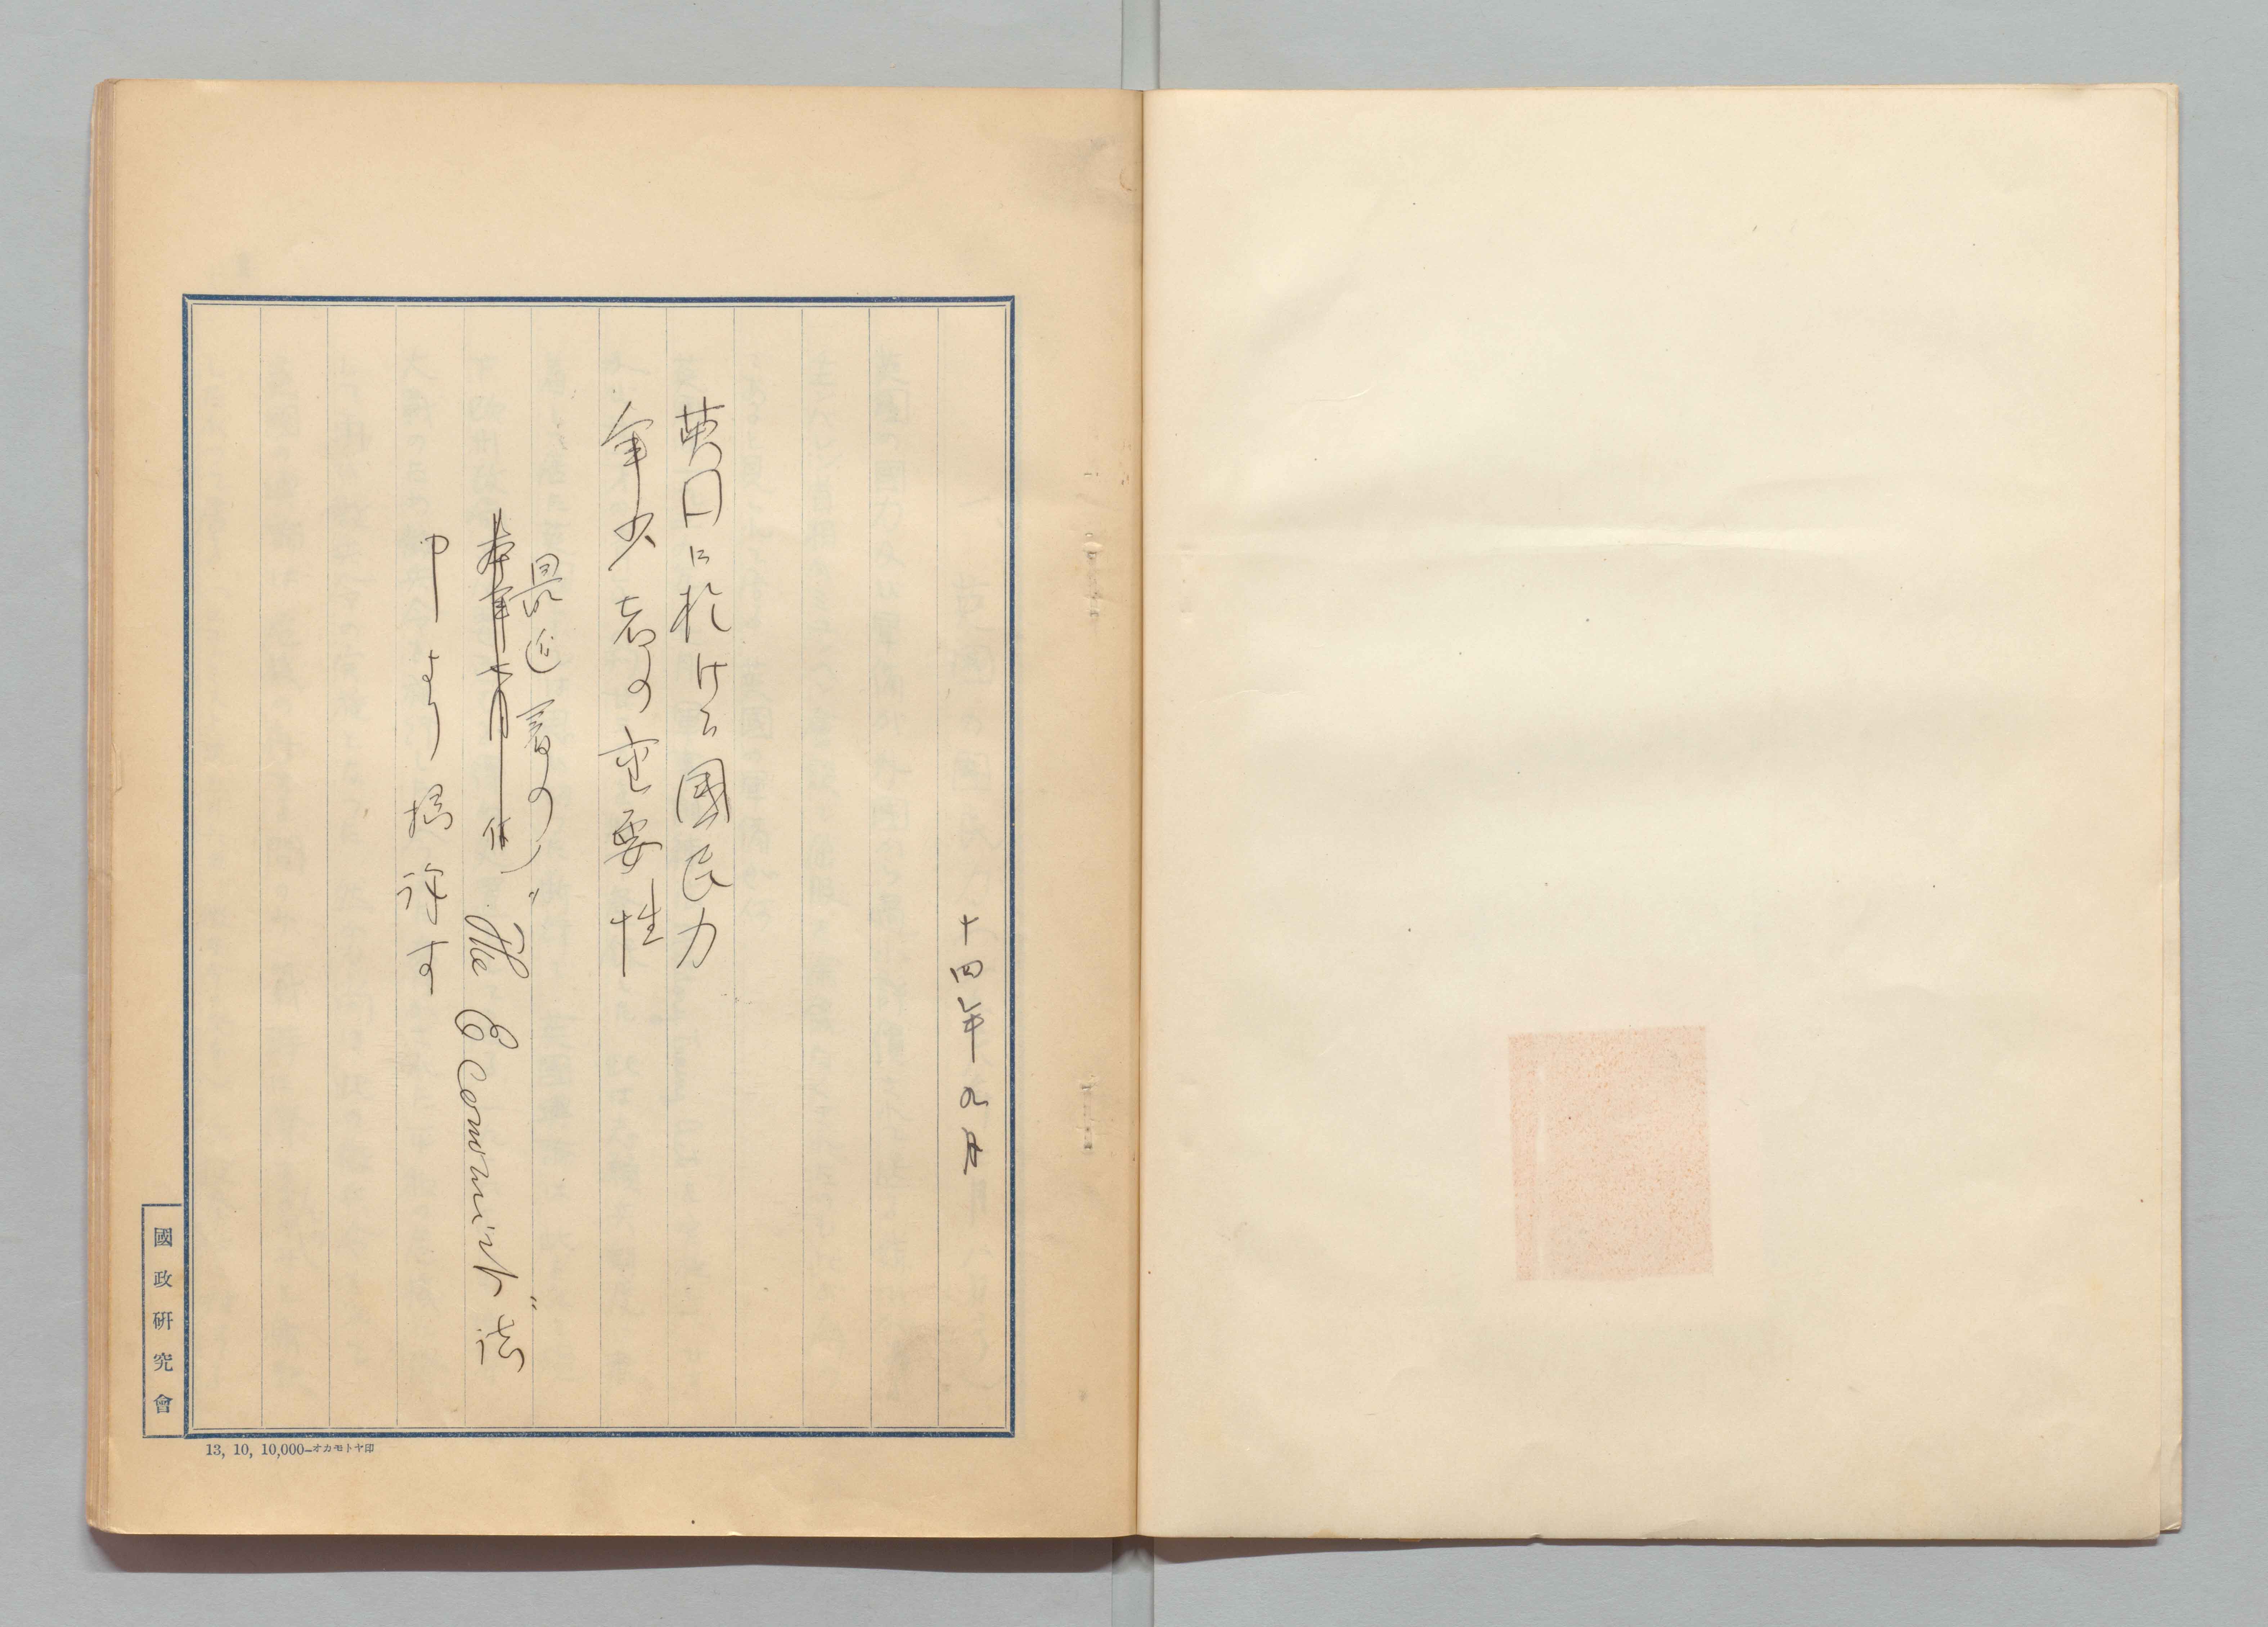 十四年九月
英国に於ける國民力
年少者の重要性
最近着の
"The Economist"誌
中より摘訳す
國政研究會
13, 10, 10,000—オカモトヤ印